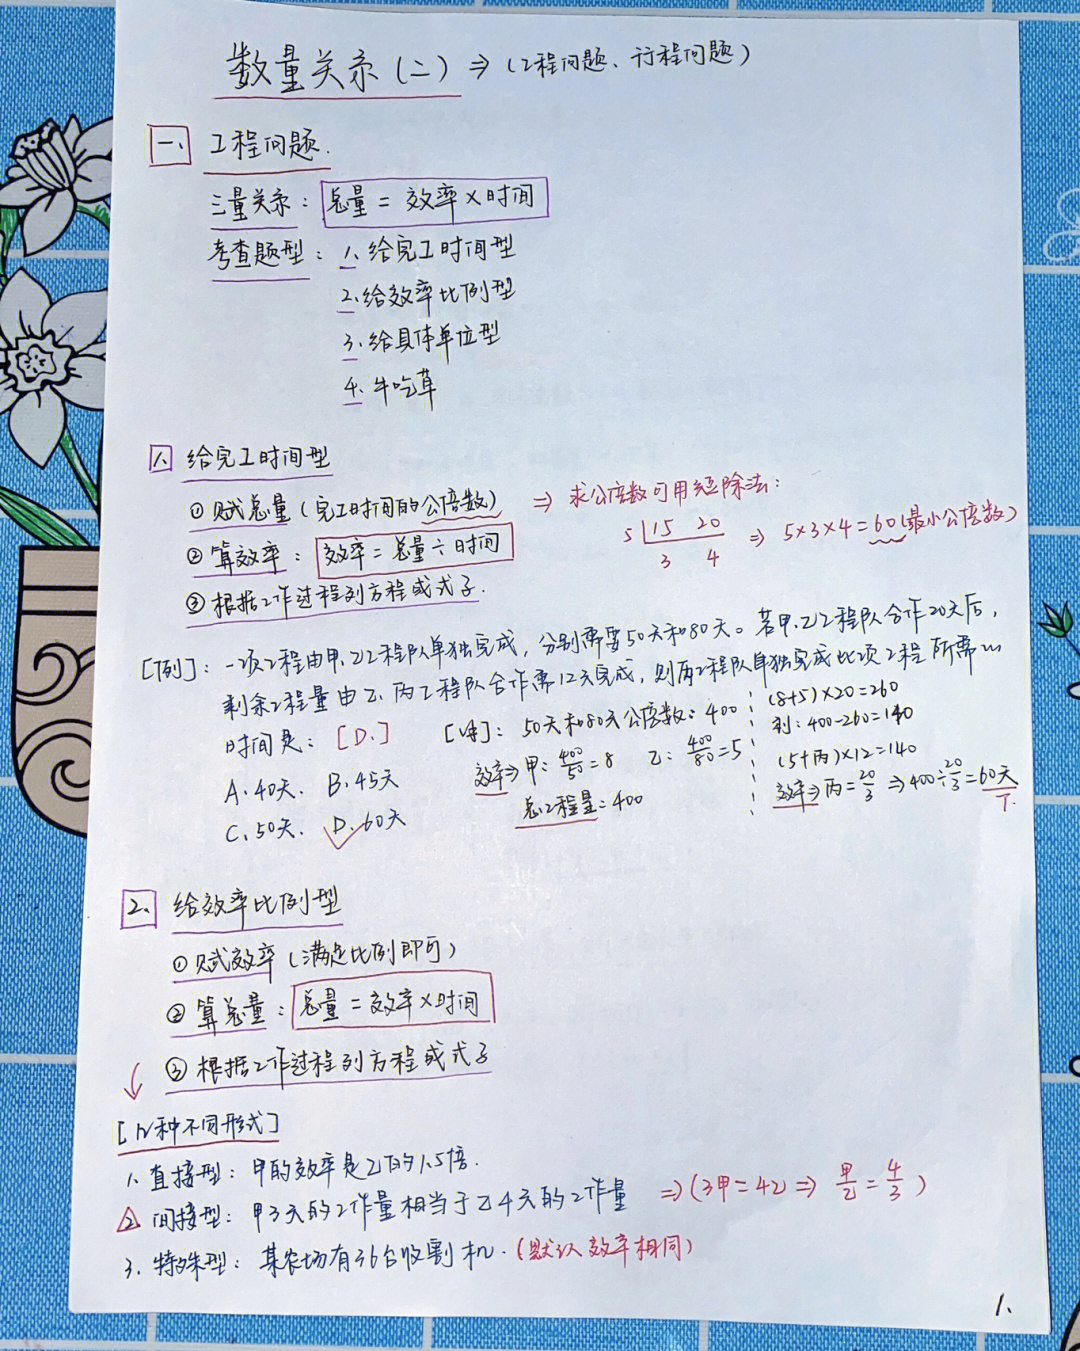 数量关系(二) ⇒ (工程问题、行程问题)
一、 工程问题.
三量关系: 总量 = 效率×时间
考查题型: 1. 给完工时间型
2. 给效率比例型
3. 给具体单位型
4. 牛吃草
1. 给完工时间型
① 赋总量(完工时间的公倍数) ⇒ 求公倍数可用短除法:
5 15 20 ⇒ 5×3×4=60(最小公倍数)
3 4
② 算效率: 效率 = 总量÷时间
③ 根据工作过程列方程或式子.
[例]: 一项工程由甲、乙工程队单独完成, 分别需要50天和80天。若甲、乙工程队合作20天后,
剩余工程量由乙、丙工程队合作需12天完成, 则丙工程队单独完成此项工程所需
时间是: [D.]
A.40天. B.45天
C.50天. D.60天
[解]: 50天和80天公倍数: 400
效率⇒甲: 400/50=8 乙: 400/80=5
总工程量=400
(8+5)×20=260
剩: 400-260=140
(5+丙)×12=140
效率⇒丙=20/3 ⇒400÷20/3=60天
2. 给效率比例型
① 赋效率(满足比例即可)
② 算总量: 总量 = 效率×时间
③ 根据工作过程列方程或式子
[几种不同形式]
1. 直接型: 甲的效率是乙的1.5倍.
2. 间接型: 甲3天的工作量相当于乙4天的工作量 ⇒(3甲=4乙⇒ 甲/乙=4/3)
3. 特殊型: 某农场有36台收割机.(默认效率相同)
1.